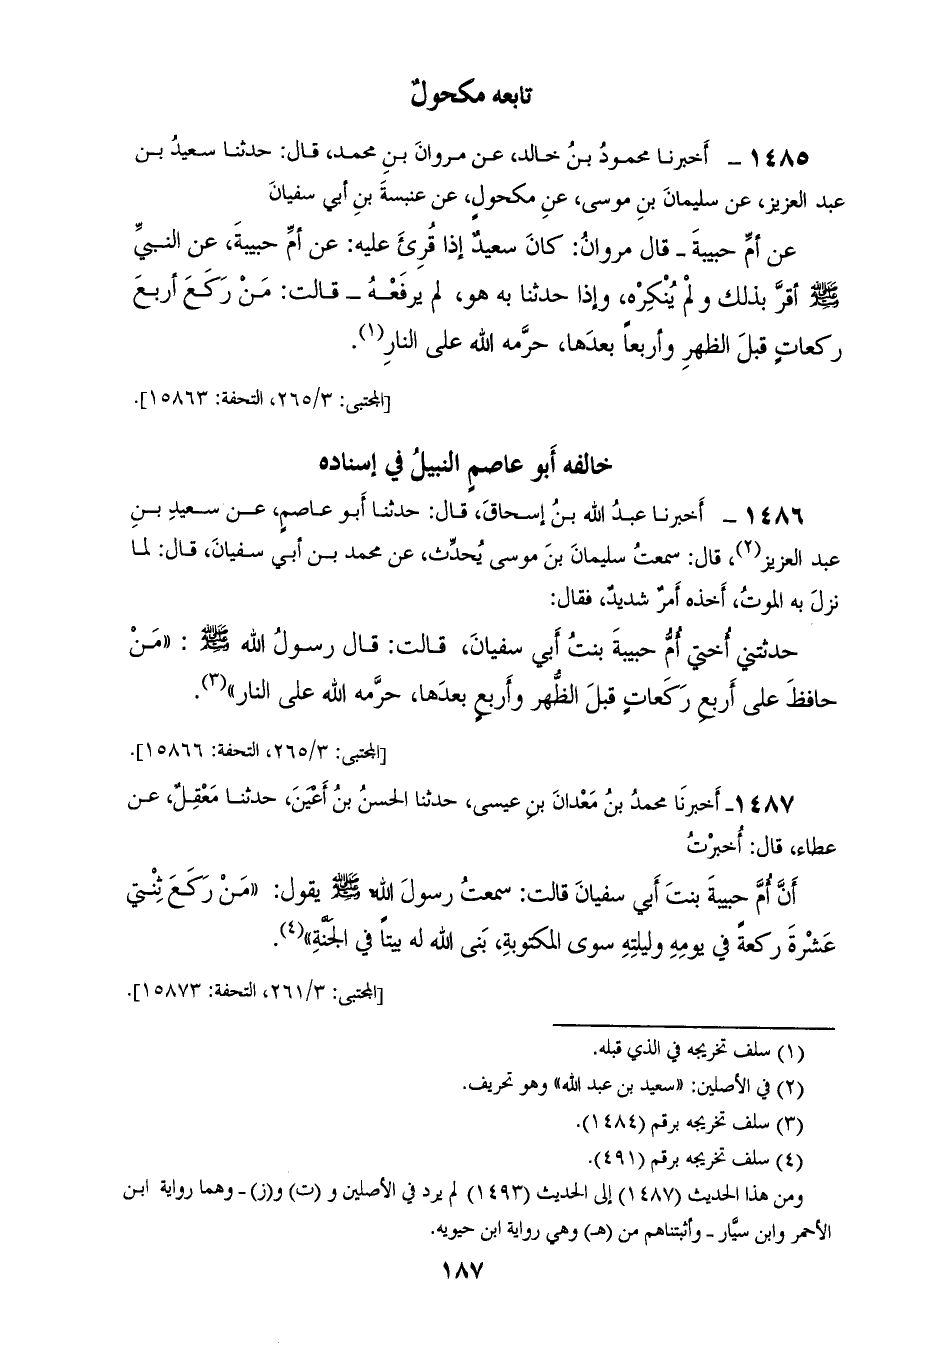 تابعه مكحولٌ
١٤٨٥ - أَخبرنا محمودُ بنُ خالد، عن مروانَ بنِ محمد، قال: حدثنا سعيدُ بن
عبد العزيز، عن سليمانَ بنِ موسى، عنِ مكحولٍ، عن عنبسةَ بنِ أبي سفيانَ
عن أمِّ حبيبةَ - قال مروانُ: كانَ سعيدٌ إذا قُرِئَ عليه: عن أمِّ حبيبةَ، عن النبيِّ
ﷺ أقرَّ بذلك ولْم يُنْكِرْه، وإذا حدثنا به هو، لم يرفَعْهُ - قالت: مَنْ رَكَعَ أربعَ
ركعاتٍ قبلَ الظهرِ وأربعاً بعدَها، حرَّمه الله على النارِ(١).
[المجتبى: ٢٦٥/٣، التحفة: ١٥٨٦٣].
خالفه أَبو عاصمٍ النبيلُ في إسناده
١٤٨٦ - أَخبرنا عبدُ الله بنُ إسحاقَ، قال: حدثنا أَبو عاصمٍ، عن سعيدِ بنِ
عبد العزيز(٢)، قال: سمعتُ سليمانَ بنَ موسى يُحدِّث، عن محمد بن أَبي سفيانَ، قال: لما
نزلَ به الموتُ، أَخذه أَمرٌ شديدٌ، فقال:
حدثتني أُختي أُمُّ حبيبةَ بنتُ أَبي سفيانَ، قالت: قال رسولُ الله ﷺ : «مَنْ
حافظَ على أَربعِ رَكَعاتٍ قبلَ الظُّهر وأَربعٍ بعدَها، حرَّمه الله على النار»(٣).
[المجتبى: ٢٦٥/٣، التحفة: ١٥٨٦٦].
١٤٨٧- أَخبرنَا محمدُ بنُ مَعْدانَ بنِ عيسى، حدثنا الحسنُ بنُ أَعْيَنَ، حدثنا مَعْقِلٌ، عن
عطاء، قال: أُخبرْتُ
أَنَّ أُمَّ حبيبةَ بنتَ أَبي سفيانَ قالت: سمعتُ رسولَ اللهِ ﷺ يقول: «مَنْ رَكَعَ ثِنْتي
عَشْرةَ ركعةً في يومِهِ وليلتِهِ سوى المكتوبةِ، بَنى الله له بيتاً في الجنَّةِ»(٤).
[المجتبى: ٢٦١/٣، التحفة: ١٥٨٧٣].
(١) سلف تخريجه في الذي قبله.
(٢) في الأصلين: «سعيد بن عبد الله» وهو تحريف.
(٣) سلف تخريجه برقم (١٤٨٤).
(٤) سلف تخريجه برقم (٤٩١).
ومن هذا الحديث (١٤٨٧) إلى الحديث (١٤٩٣) لم يرد في الأصلين و (ت) و(ز) - وهما رواية ابن
الأحمر وابن سيَّار - وأثبتناهم من (هـ) وهي رواية ابن حيويه.
١٨٧